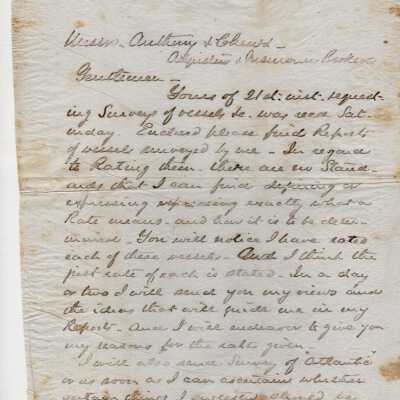 Messrs. Anthony &
Adjusters & Insurance Brokers
Gentlemen -
Yours of 21st inst. request-
ing Surveys of vessels &c. was recd Sat-
urday. Enclosed please find Reports
of vessels surveyed by me - In regard
to Rating them - there are no Stand-
ards that I can find defining or
expressing expressing exactly what a
Rate means - and how it is to be deter-
mined. You will notice I have rated
each of these vessels - And I think the
just rate of each is stated - In a day
or two I will send you my views and
the ideas that will guide me in my
Reports - And I will endeavor to give you
my reasons for the rate given.
I will also send Survey of "Atlantic"
or as soon as I can ascertain whether
certain things I